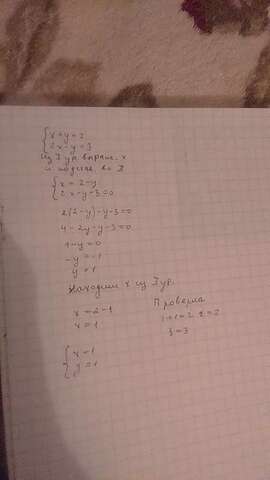 x+y=2
2x-y=3
Из I ур. выраж. x
и подста во 2
x=2-y
2x-y-3=0
2(2-y)-y-3=0
4-2y-y-3=0
1-y=0
-y=-1
y=1
Находим x из I ур.
Проверка
x=2-1
1+1=2 2=2
x=1
3=3
x=1
y=1